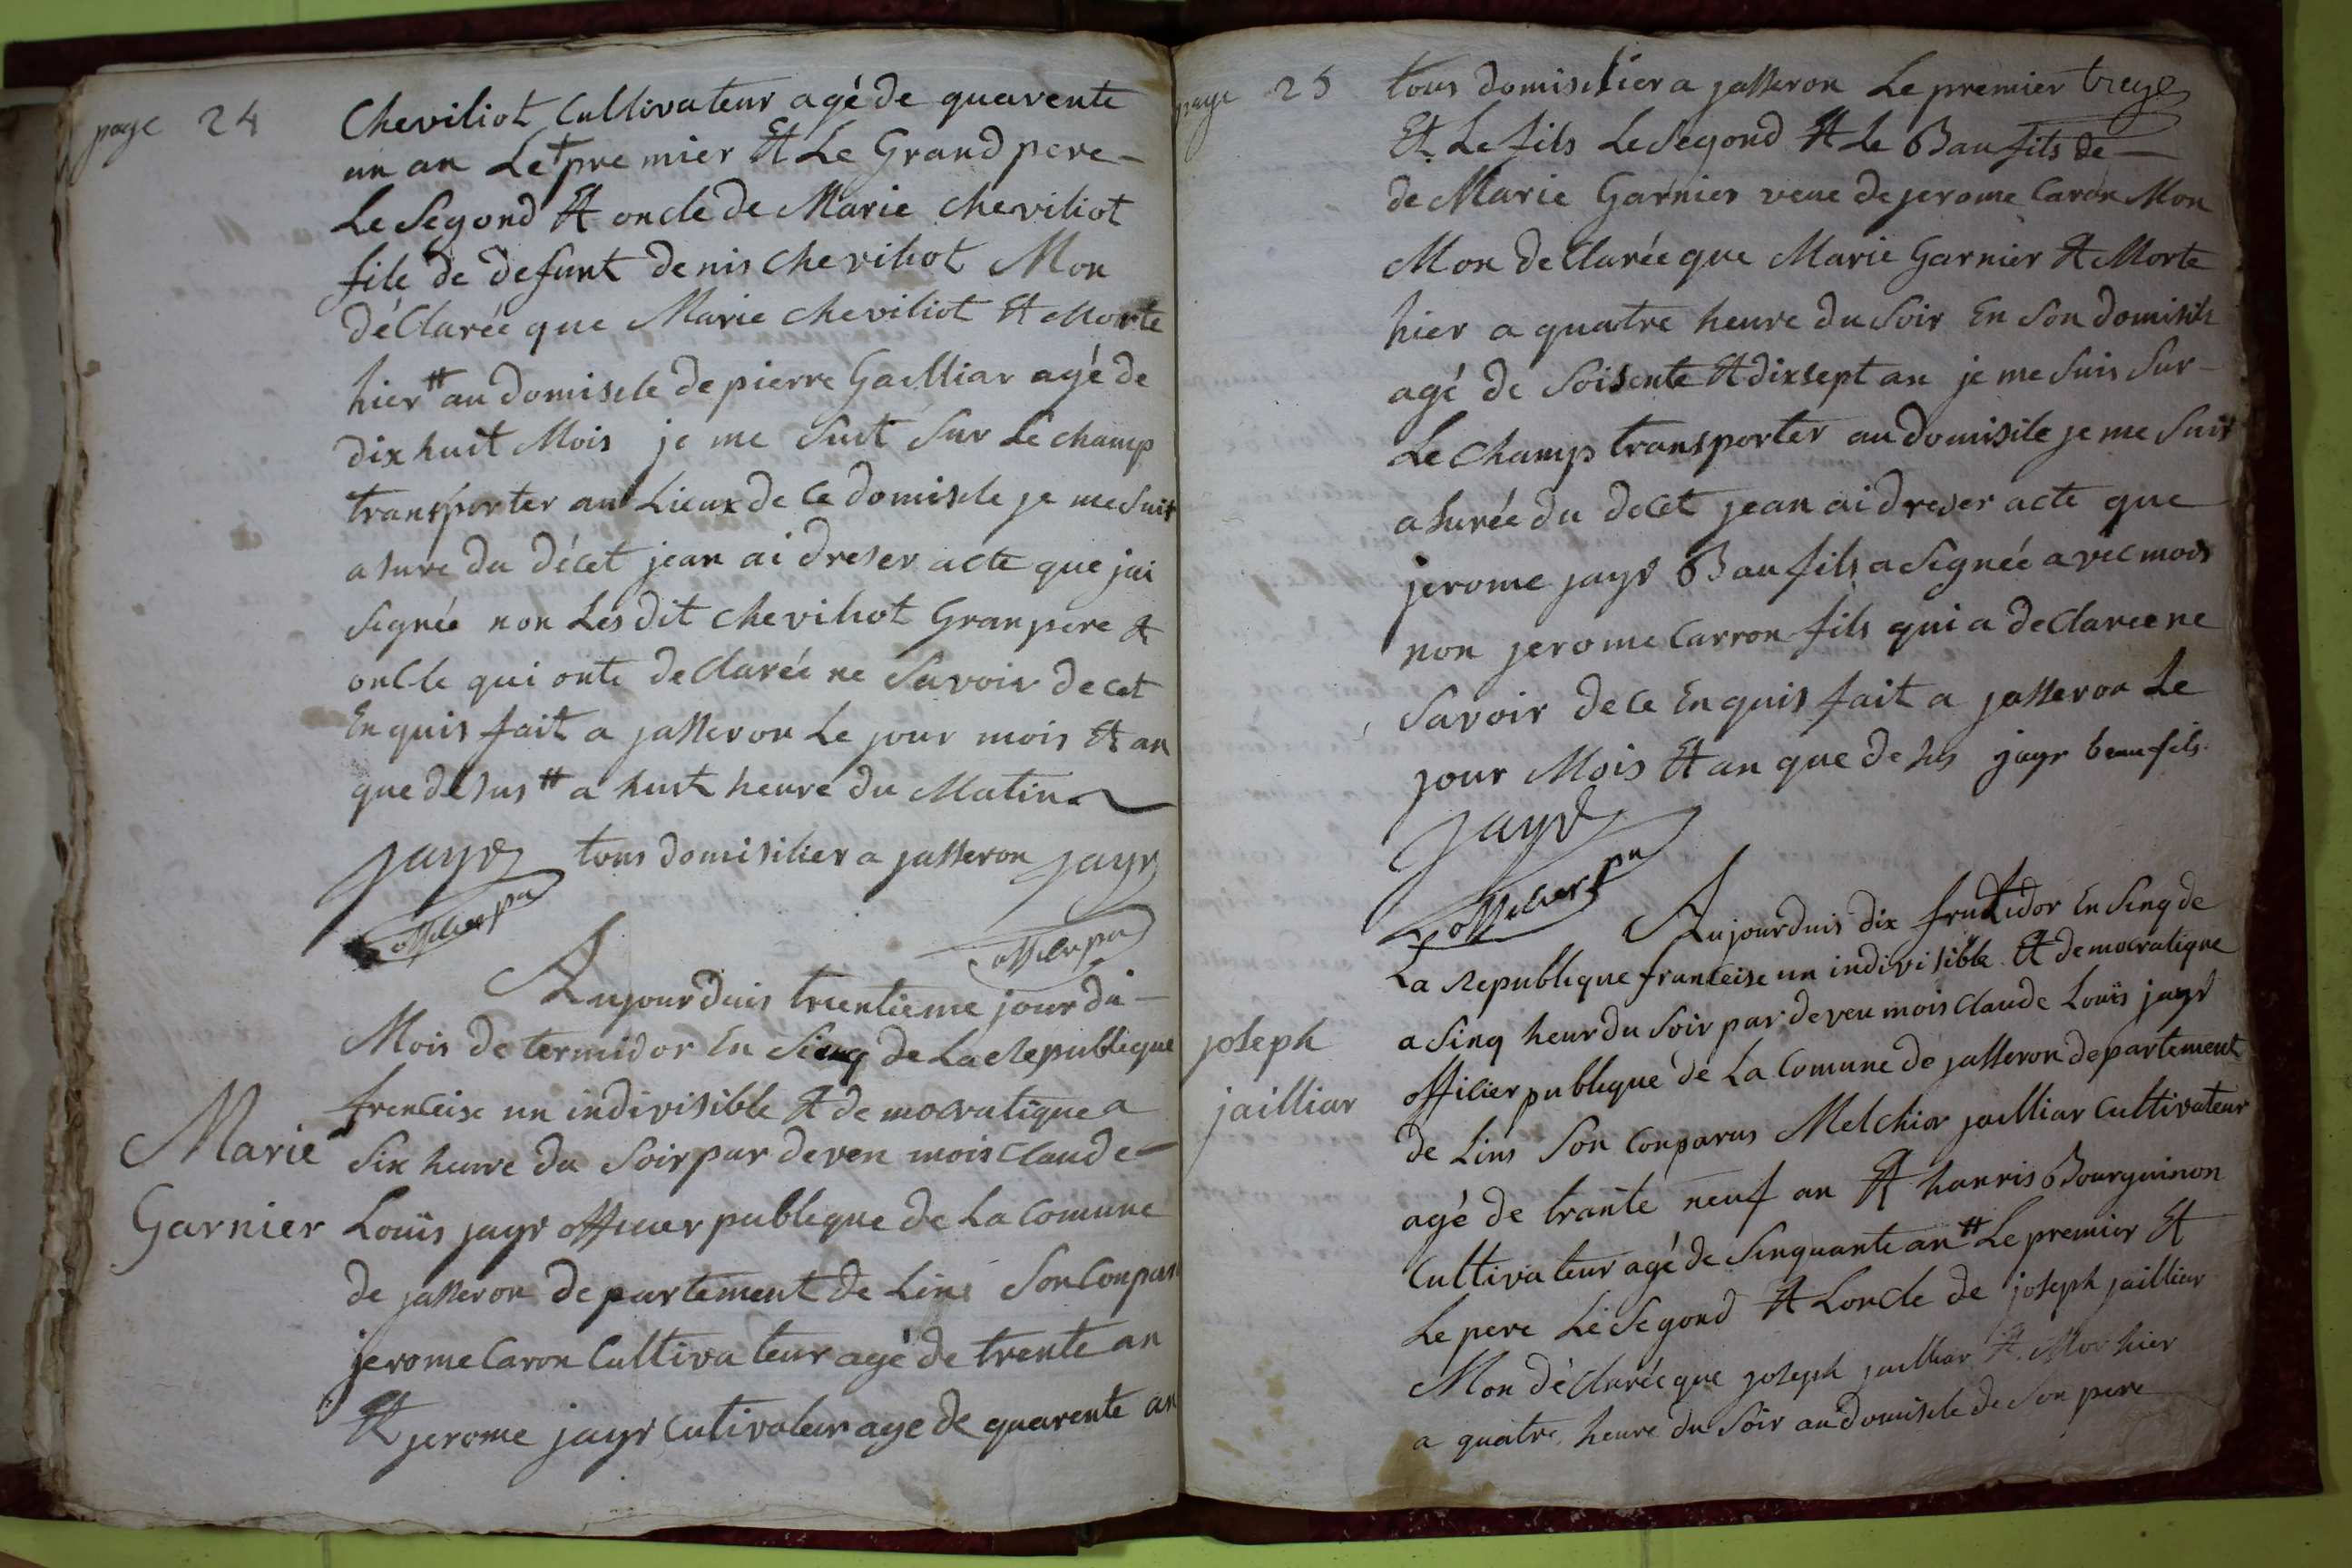 page 24
Cheviliot Cultivateur agé de quarente
un an Le premier Et Le Grand pere
Le Segond Et oncle de Marie cheviliot
file de defunt denis cheviliot Mon
déClarée que Marie cheviliot Et Morte
hier # au domisile de pierre Gailliar agé de
dix huit Mois je me Suit Sur Le champ
transporter au Lieux de Ce domisile je me Suit
asure du décet jean ai dreser acte que jai
Signée non Les dit cheviliot Granpere Et
onCle qui onte deClarée ne Savoir de cet
En quis fait a jasseron Le jour mois Et an
que desus # a huit heure du Matin
jayr tous domisilier a jasseron jayr
officier pu
officier pu
Aujourduis trentieme jour du
Mois de termidor En Sinq de La Republique
Marie
franceise un indivisible Et democratique a
Six heure du Soir par deven mois Claude
Garnier
Louïs jayr officier publique de La Comune
de jasseron departement de Lins Son Conparu
jerome Caron Cultivateur agé de trente an
Et jerome jayr Cutivateur age de quarente an
page 25
tous domisilier a jasseron Le premier
Et Le fils Le Segond Et Le Baufils de
de Marie Garnier veue de jerome Caron Mon
Mon deClarée que Marie Garnier Et Morte
hier a quatre heure du Soir En Son domisile
agé de Soisente Et dixsept an je me Suis Sur
Le Champ transporter au domisile je me Suis
asurée du decet jean ai dreser acte que
jerome jayr Baufils a Signée avec mois
non jerome Carron fils qui a deClaree ne
Savoir de Ce Enquis fait a jasseron Le
jour Mois Et an que desus jayr beaufils
jayr
officier pu
Aujourduis dix frutidor En Sinq de
La Republique franceise un indivisible Et democratique
a Sinq heur du Soir par deven mois Claude Louïs jayr
joseph
officier publique de La Comune de jasseron departement
jailliar
de Lins Son Conparus Melchior jailliar Cultivateur
agé de trante neuf an Et hanris Bourguinon
Cultivateur agé de Sinquante an # Le premier Et
Le pere Le Segond Et Loncle de joseph jailliar
Mon déClarée que joseph jailliar Et Mor hier
a quatre heure du Soir au domisile de Son pere